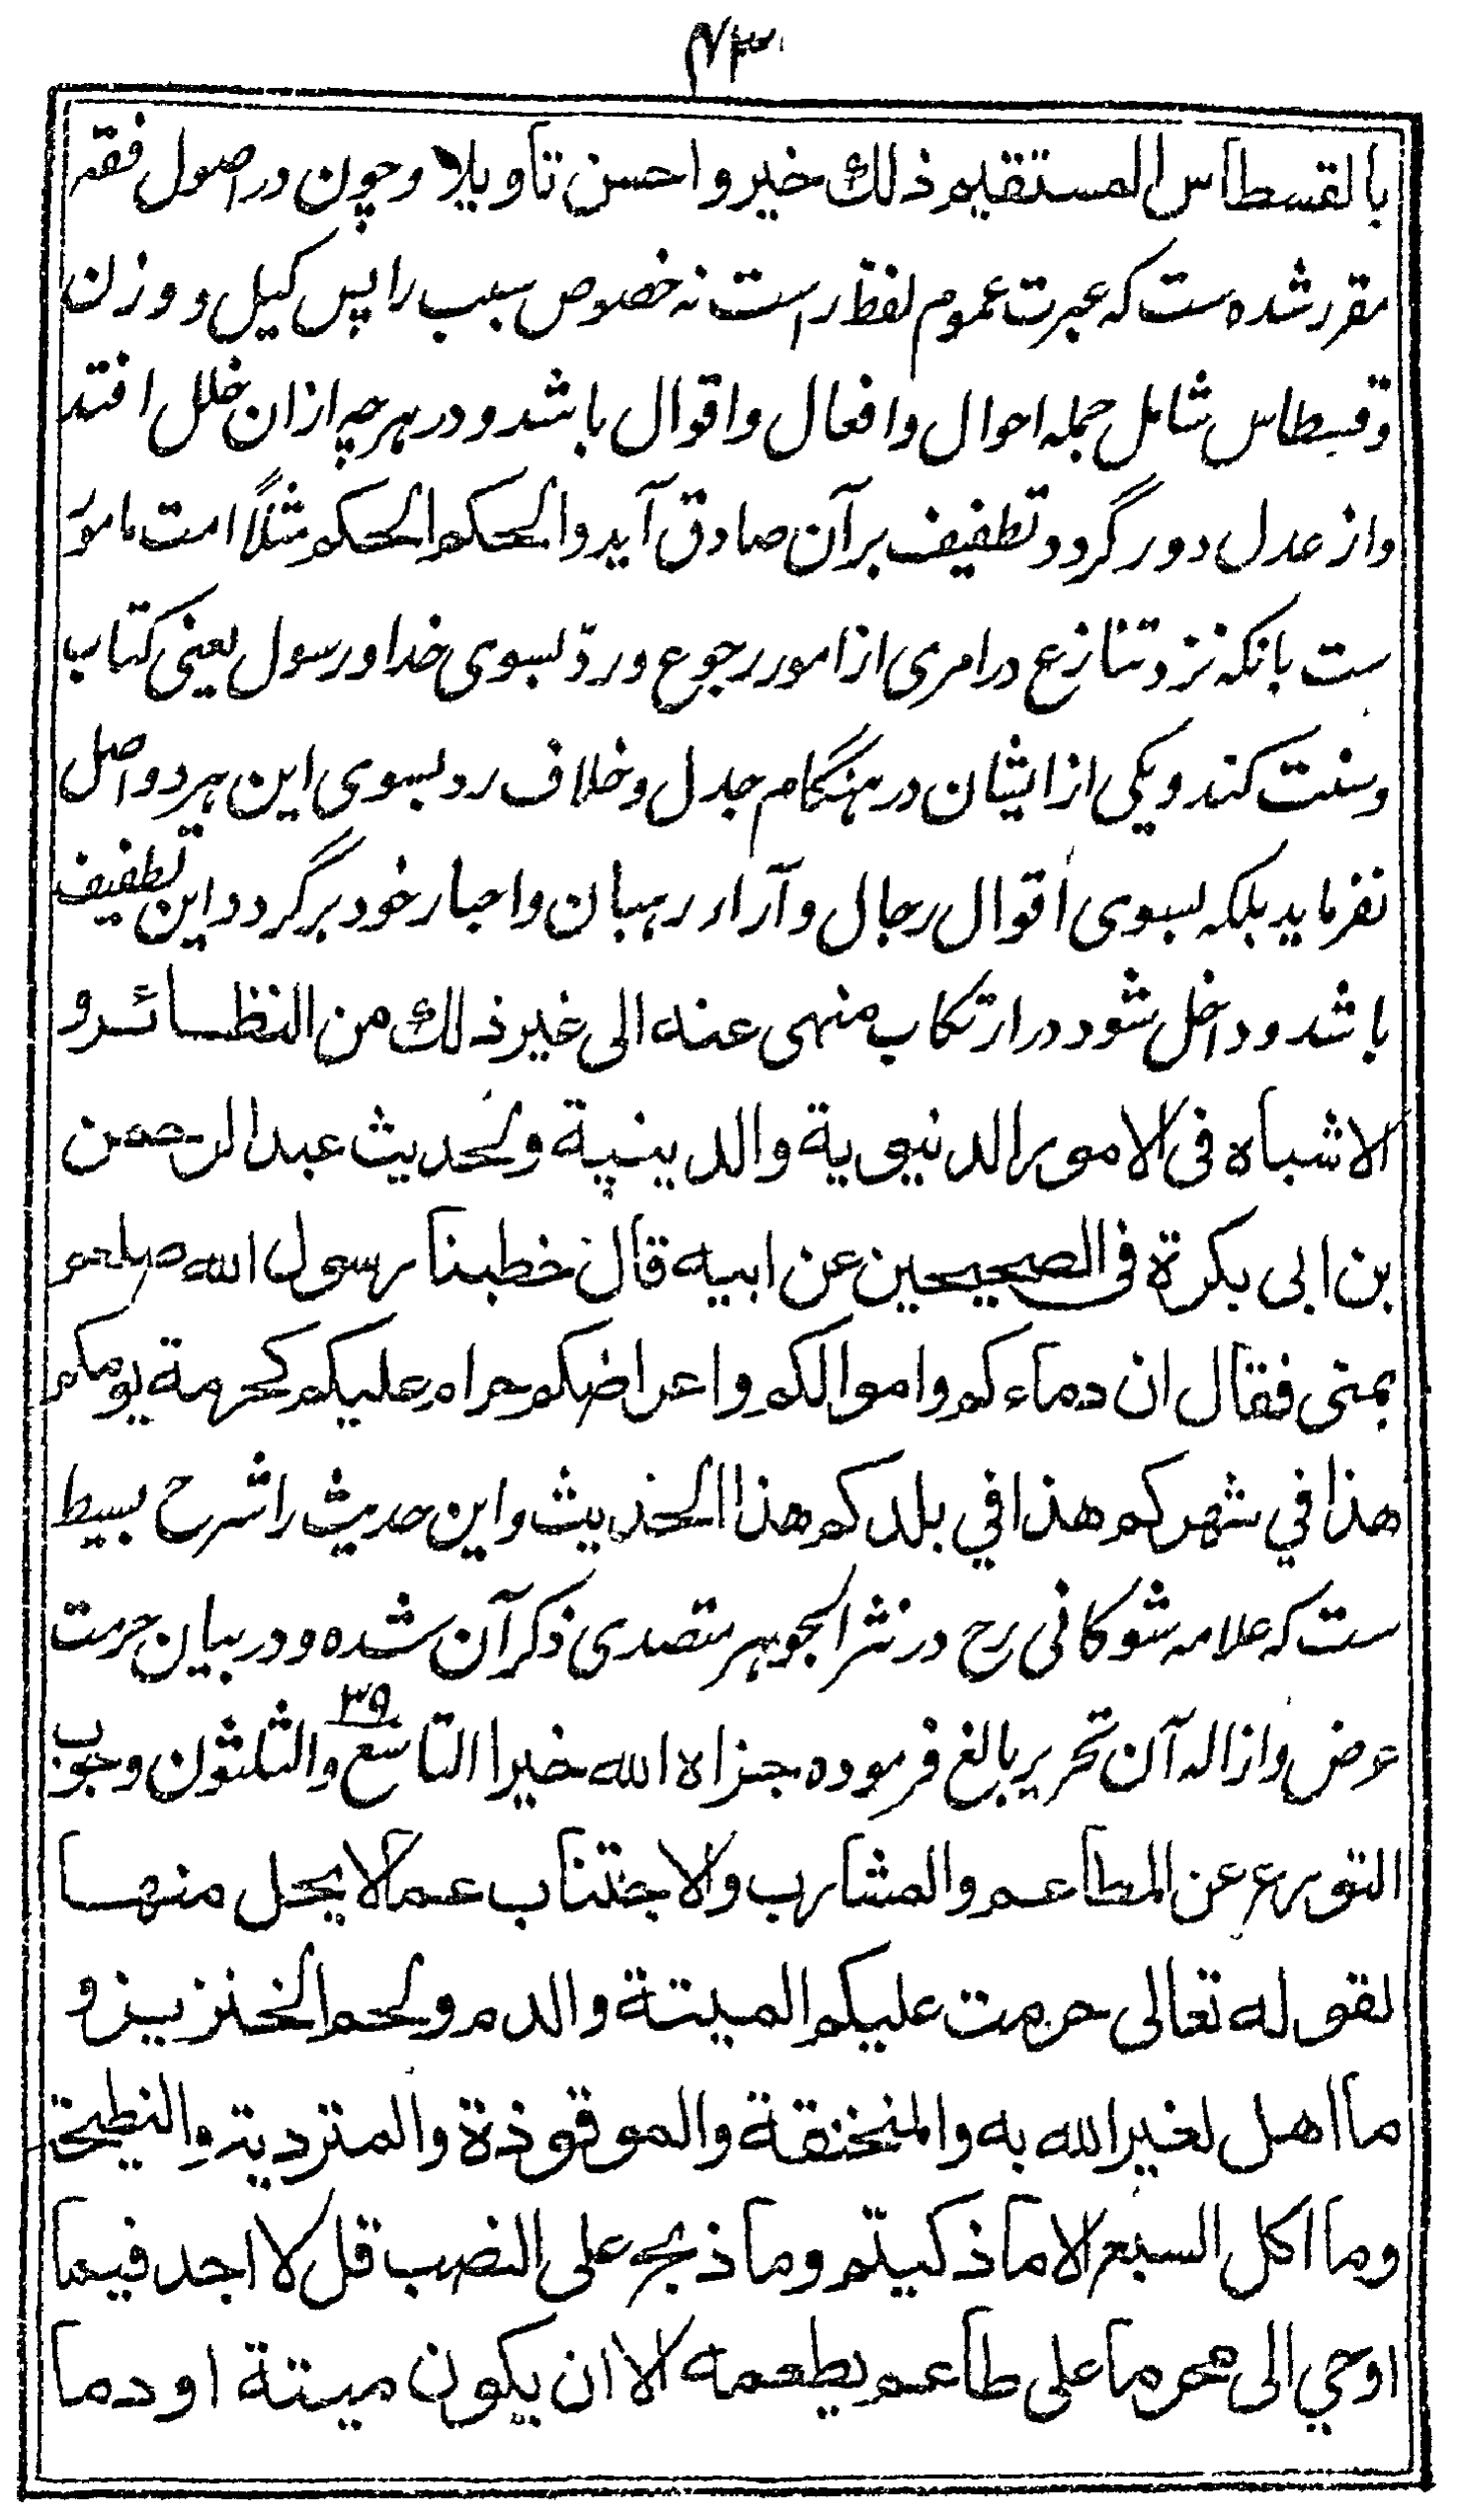 ۴۳
بالقسطاس المستقیم ذلك خیر واحسن تأویلا وچون در اصول فقه
مقرر شده ست که عبرت عموم لفظ راست نه خصوص سبب را پس کیل و وزن
وقسطاس شامل جمله احوال وافعال واقوال باشد و در هرچه ازان خلل افتد
واز عدل دور گردد تطفیف بر آن صادق آید والحکم الحکم مثلاً امت مامور
ست بانکه نزد تنازع در امری از امور رجوع ورد بسوی خدا ورسول یعنی کتاب
وسنت کند ویکی از ایشان در هنگام جدل وخلاف رد بسوی این هر دو اصل
نفرماید بلکه بسوی اقوال رجال وآراء رهبان واحبار خود برگردد واین تطفیف
باشد و داخل شود در ارتکاب منهی عنه الی غیر ذلك من النظائر و
الاشباه فی الامور الدنیویة والدینیة ولحدیث عبد الرحمن
بن ابی بکرة فی الصحیحین عن ابیه قال خطبنا رسول الله صلعم
بمنی فقال ان دماءکم واموالکم واعراضکم حرام علیکم کحرمة یومکم
هذا في شهرکم هذا في بلدکم هذا الحدیث واین حدیث را شرح بسیط
ست که علامه شوکانی رح در نثر الجوهر متصدی ذکر آن شده و در بیان حرمت
عرض وازاله آن تحریر بالغ فرموده جزاه الله خیرا التاسع والثلثون وجوب
۳۹
التورع عن المطاعم والمشارب والاجتناب عما لا یحل منها
لقوله تعالی حرمت علیکم المیتة والدم ولحم الخنزیر و
ما اهل لغیر الله به والمنخنقة والموقوذة والمتردیة والنطیحة
وما اکل السبع الا ما ذکیتم وما ذبح علی النصب قل لا اجد فیما
اوحي الی محرما علی طاعم یطعمه الا ان یکون میتة او دما